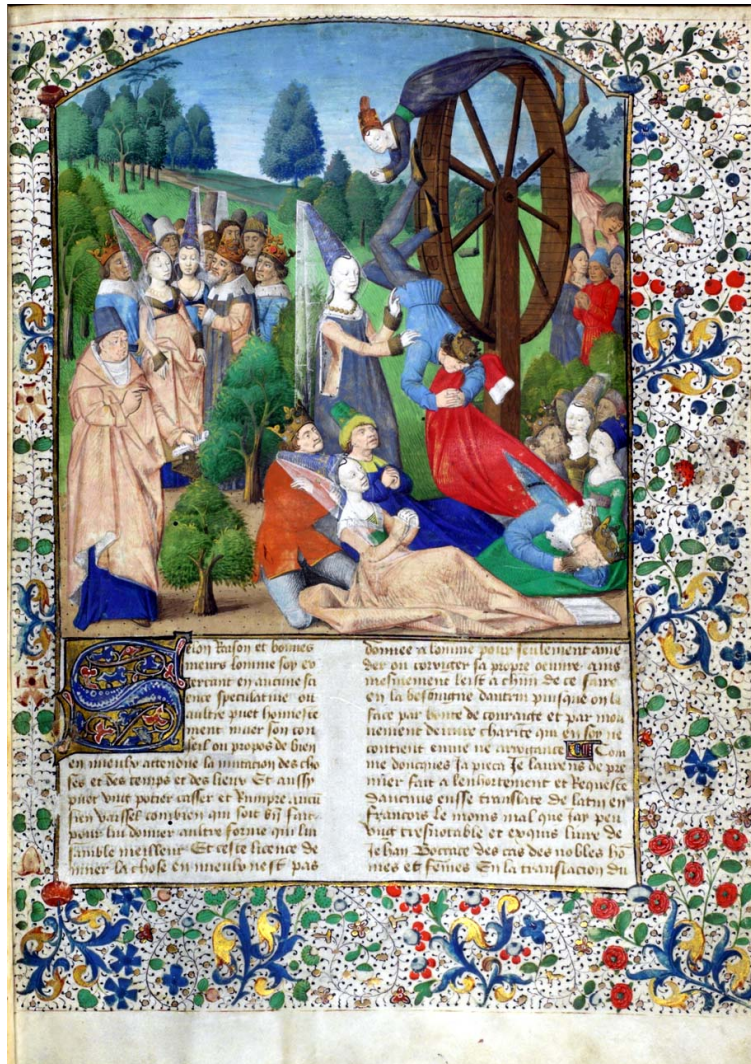 Selon Raison et bonnes
meurs lomme soy ex
ercant en aucune sci
ence speculatiue ou
aultre puet honneste
ment muer son con
seil ou propos de bien
en mieulx attendue la mutation des cho
ses et des temps et des lieux Et aussy
puet vng potier casser et Rompre aucū
sien vaissel combien qui soit bñ fait
pour lui donner aultre forme qui lui
samble meilleur Et ceste licence de
muer la chose en mieulx nest pas
donnee a lomme pour seulement ame
der ou corriger sa propre oeuure ains
mesmement leist a chūn de ce faire
en la besoingne dautrui puisque on la
face par bonte de couraige et par mou
uement de vraie charite qui en soy ne
contient enuie ne arrogance Com
me doncques Ja pieca Je laurens de pre
mier fait a lenhortement et Requeste
daucuns eusse translate de latin en
francois le moins mal que Jay peu
vng tresnotable et exquis liure de
Jehan Boccace des cas des nobles hō
mes et fēmes En la translacion du